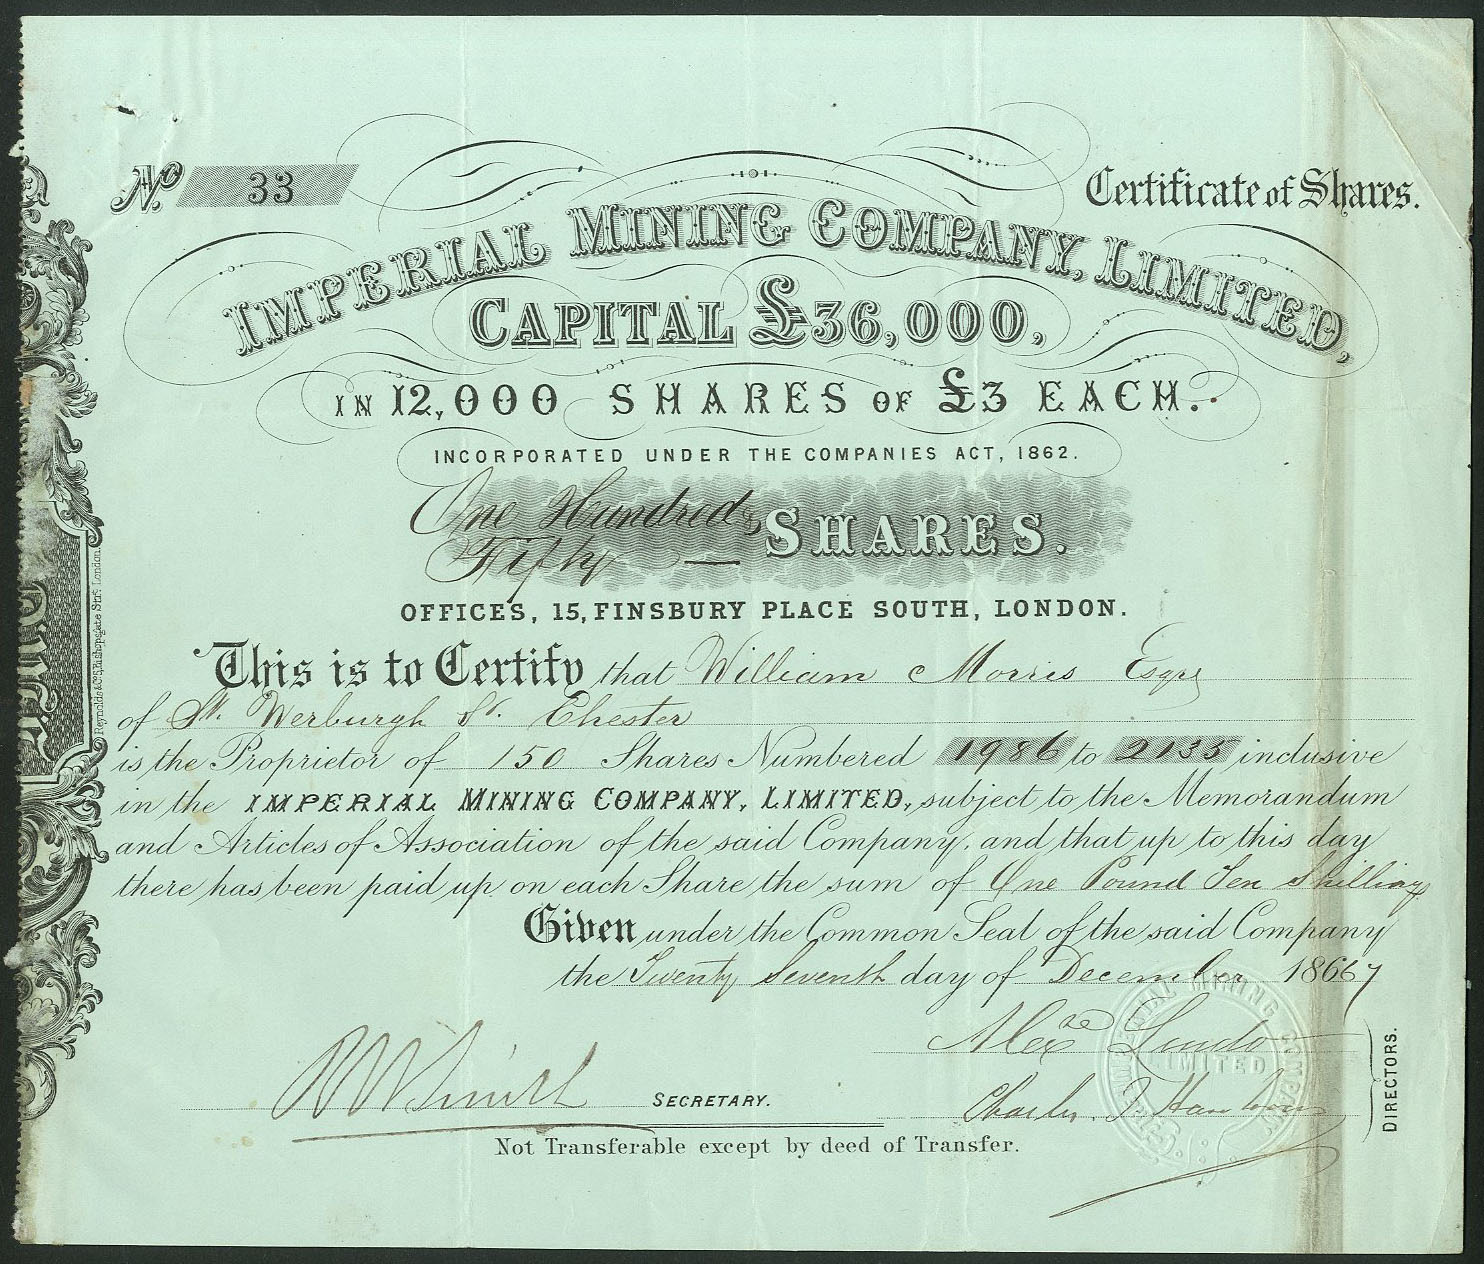 No. 33
Certificate of Shares.
IMPERIAL MINING COMPANY, LIMITED,
CAPITAL £36,000,
IN 12,000 SHARES OF £3 EACH.
INCORPORATED UNDER THE COMPANIES ACT, 1862.
One Hundred &
Fifty — SHARES.
OFFICES, 15, FINSBURY PLACE SOUTH, LONDON.
This is to Certify that William Morris Esqre
of St. Werburgh St. Chester
is the Proprietor of 150 Shares Numbered 1986 to 2135 inclusive
in the IMPERIAL MINING COMPANY, LIMITED, subject to the Memorandum
and Articles of Association of the said Company, and that up to this day
there has been paid up on each Share the sum of One Pound Ten Shillings
Given under the Common Seal of the said Company
the Twenty Seventh day of December 18667
Alexre Lindo
Charles J. 
DIRECTORS.
IMPERIAL MINING COMPANY
LIMITED
Smith SECRETARY.
Not Transferable except by deed of Transfer.
Reynolds & Co. Bishopsgate Strt. London.